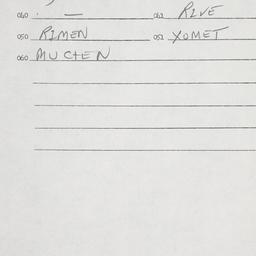 040 . — 042 RIVE
050 RIMEN 052 XOMET
060 MUCTEN